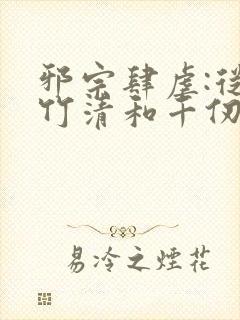 邪宗肆虐:從
竹清和千仞
易冷之煙花